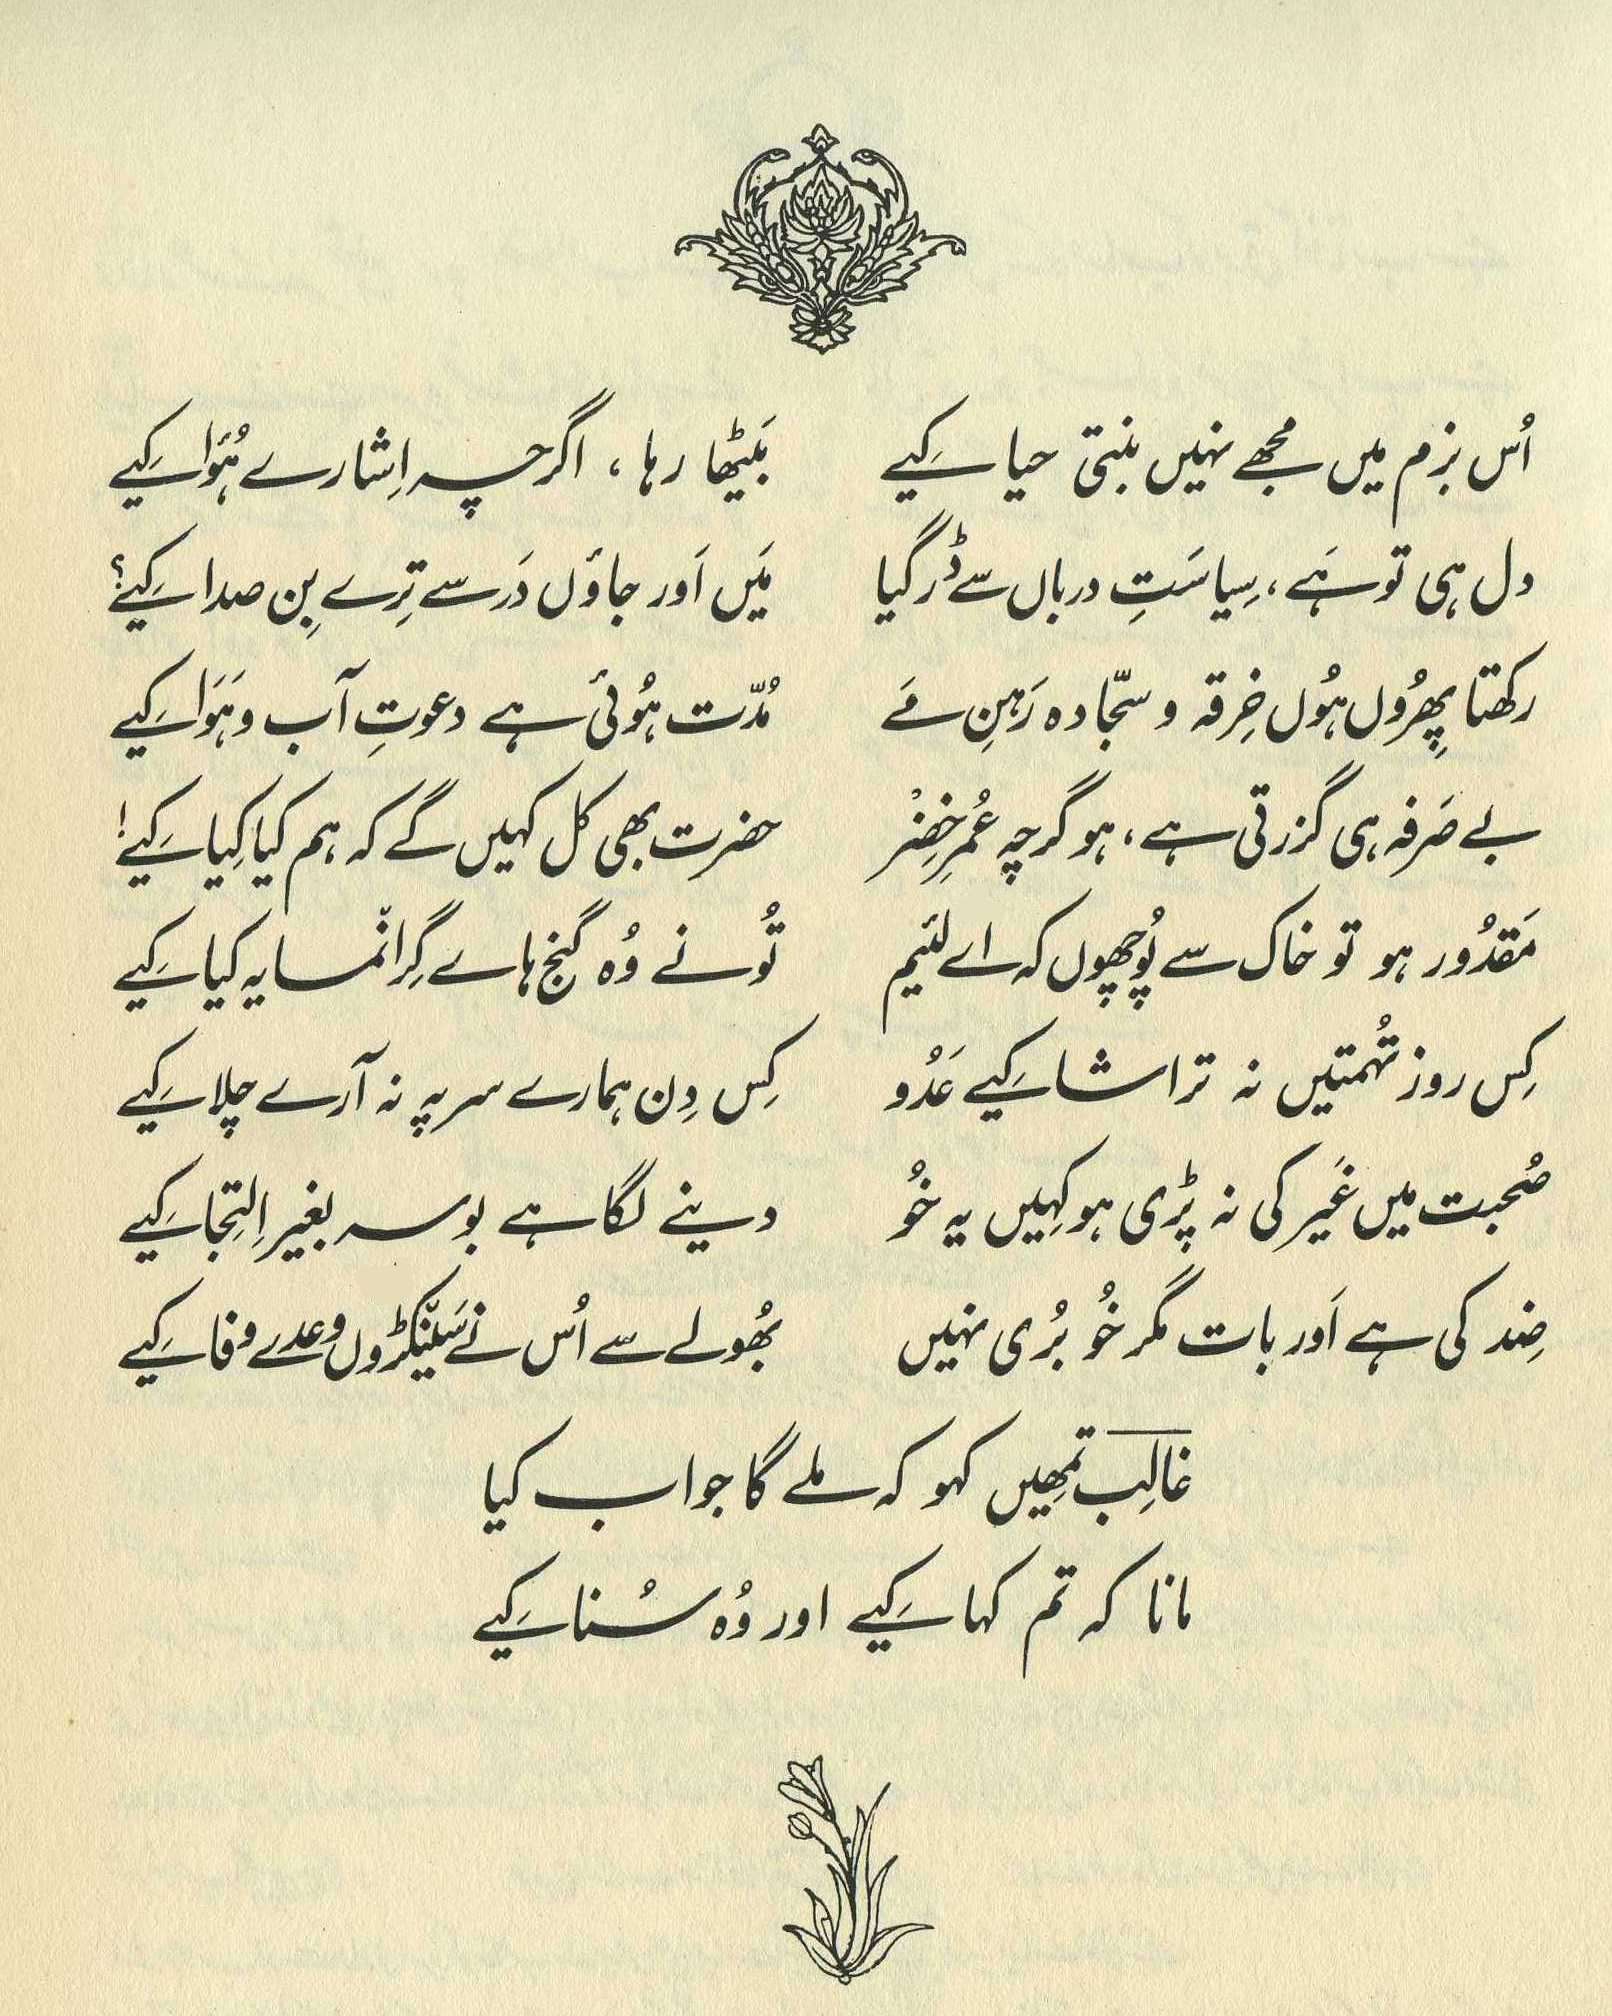 اُس بزم میں مجھے نہیں بنتی حیا کیے
بَیٹھا رہا ، اگرچہ اِشارے ہُوا کیے
دل ہی تو ہَے ، سِیاسَتِ درباں سے ڈر گیا
مَیں اَور جاؤں دَر سے تِرے بِن صدا کیے؟
رکھتا پِھرُوں ہُوں خِرقہ و سجّادہ رَہنِ مَے
مُدّت ہُوئی ہے دعوتِ آب و ہَوا کیے
بے صَرفہ ہی گزرتی ہے ، ہو گرچہ عُمرِ خِضْر
حضرت بھی کل کہیں گے کہ ہم کیا کِیا کیے!
مَقدُور ہو تو خاک سے پُوچھوں کہ اے لئیم
تُو نے وُہ گنج ہاے گِرانمایہ کیا کیے
کِس روز تُہمتیں نہ تراشا کیے عَدُو
کِس دِن ہمارے سر پہ نہ آرے چلا کیے
صُحبت میں غَیر کی نہ پڑی ہو کہِیں یہ خُو
دینے لگا ہے بوسہ بغیر اِلتِجا کیے
ضِد کی ہے اَور بات مگر خُو بُری نہیں
بُھولے سے اُس نے سَینکڑوں وعدے وفا کیے
غالِب تمھِیں کہو کہ ملے گا جواب کیا
مانا کہ تم کہا کیے اور وُہ سُنا کیے